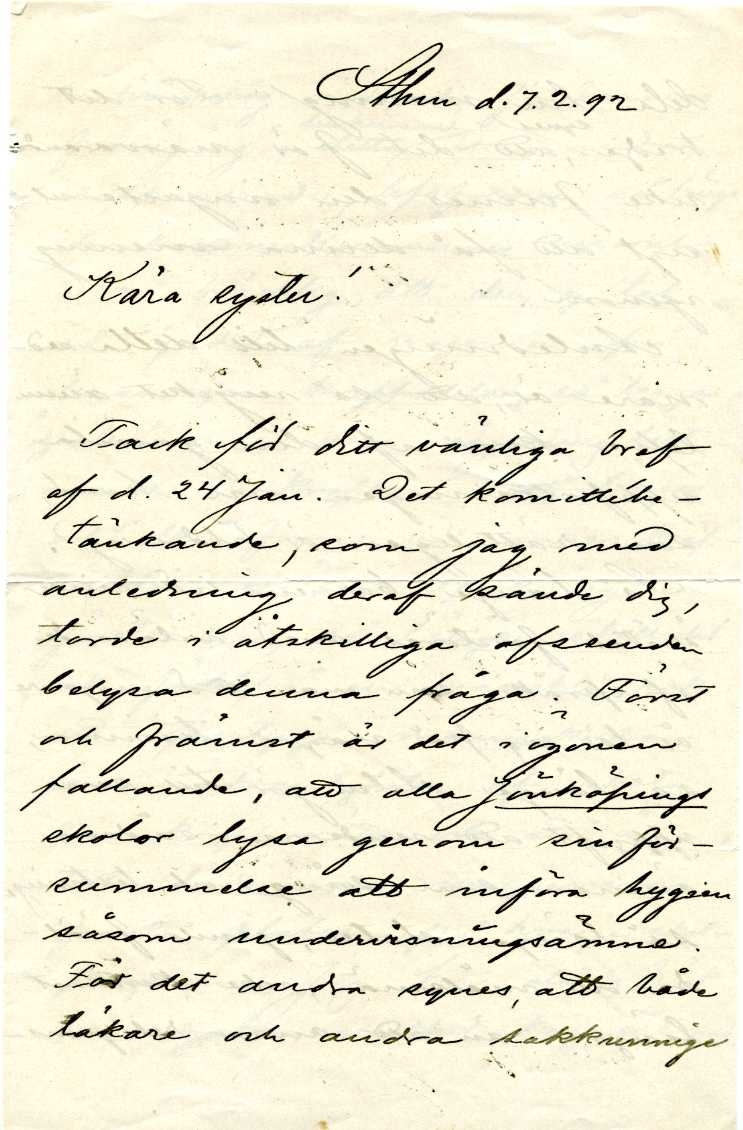 Sthm d. 7. 2. 92
Kära syster!
Tack för ditt vänliga bref
af d. 24 Jan. Det komittébe-
tänkande, som jag med
anledning deraf sände dig,
torde i åtskilliga afseenden
belysa denna fråga. Först
och främst är det i ögonen
fallande, att alla Jönköpings
skolor lysa genom sin för-
summelse att införa hygien
såsom undervisningsämne.
För det andra synes, att både
läkare och andra sakkunnige